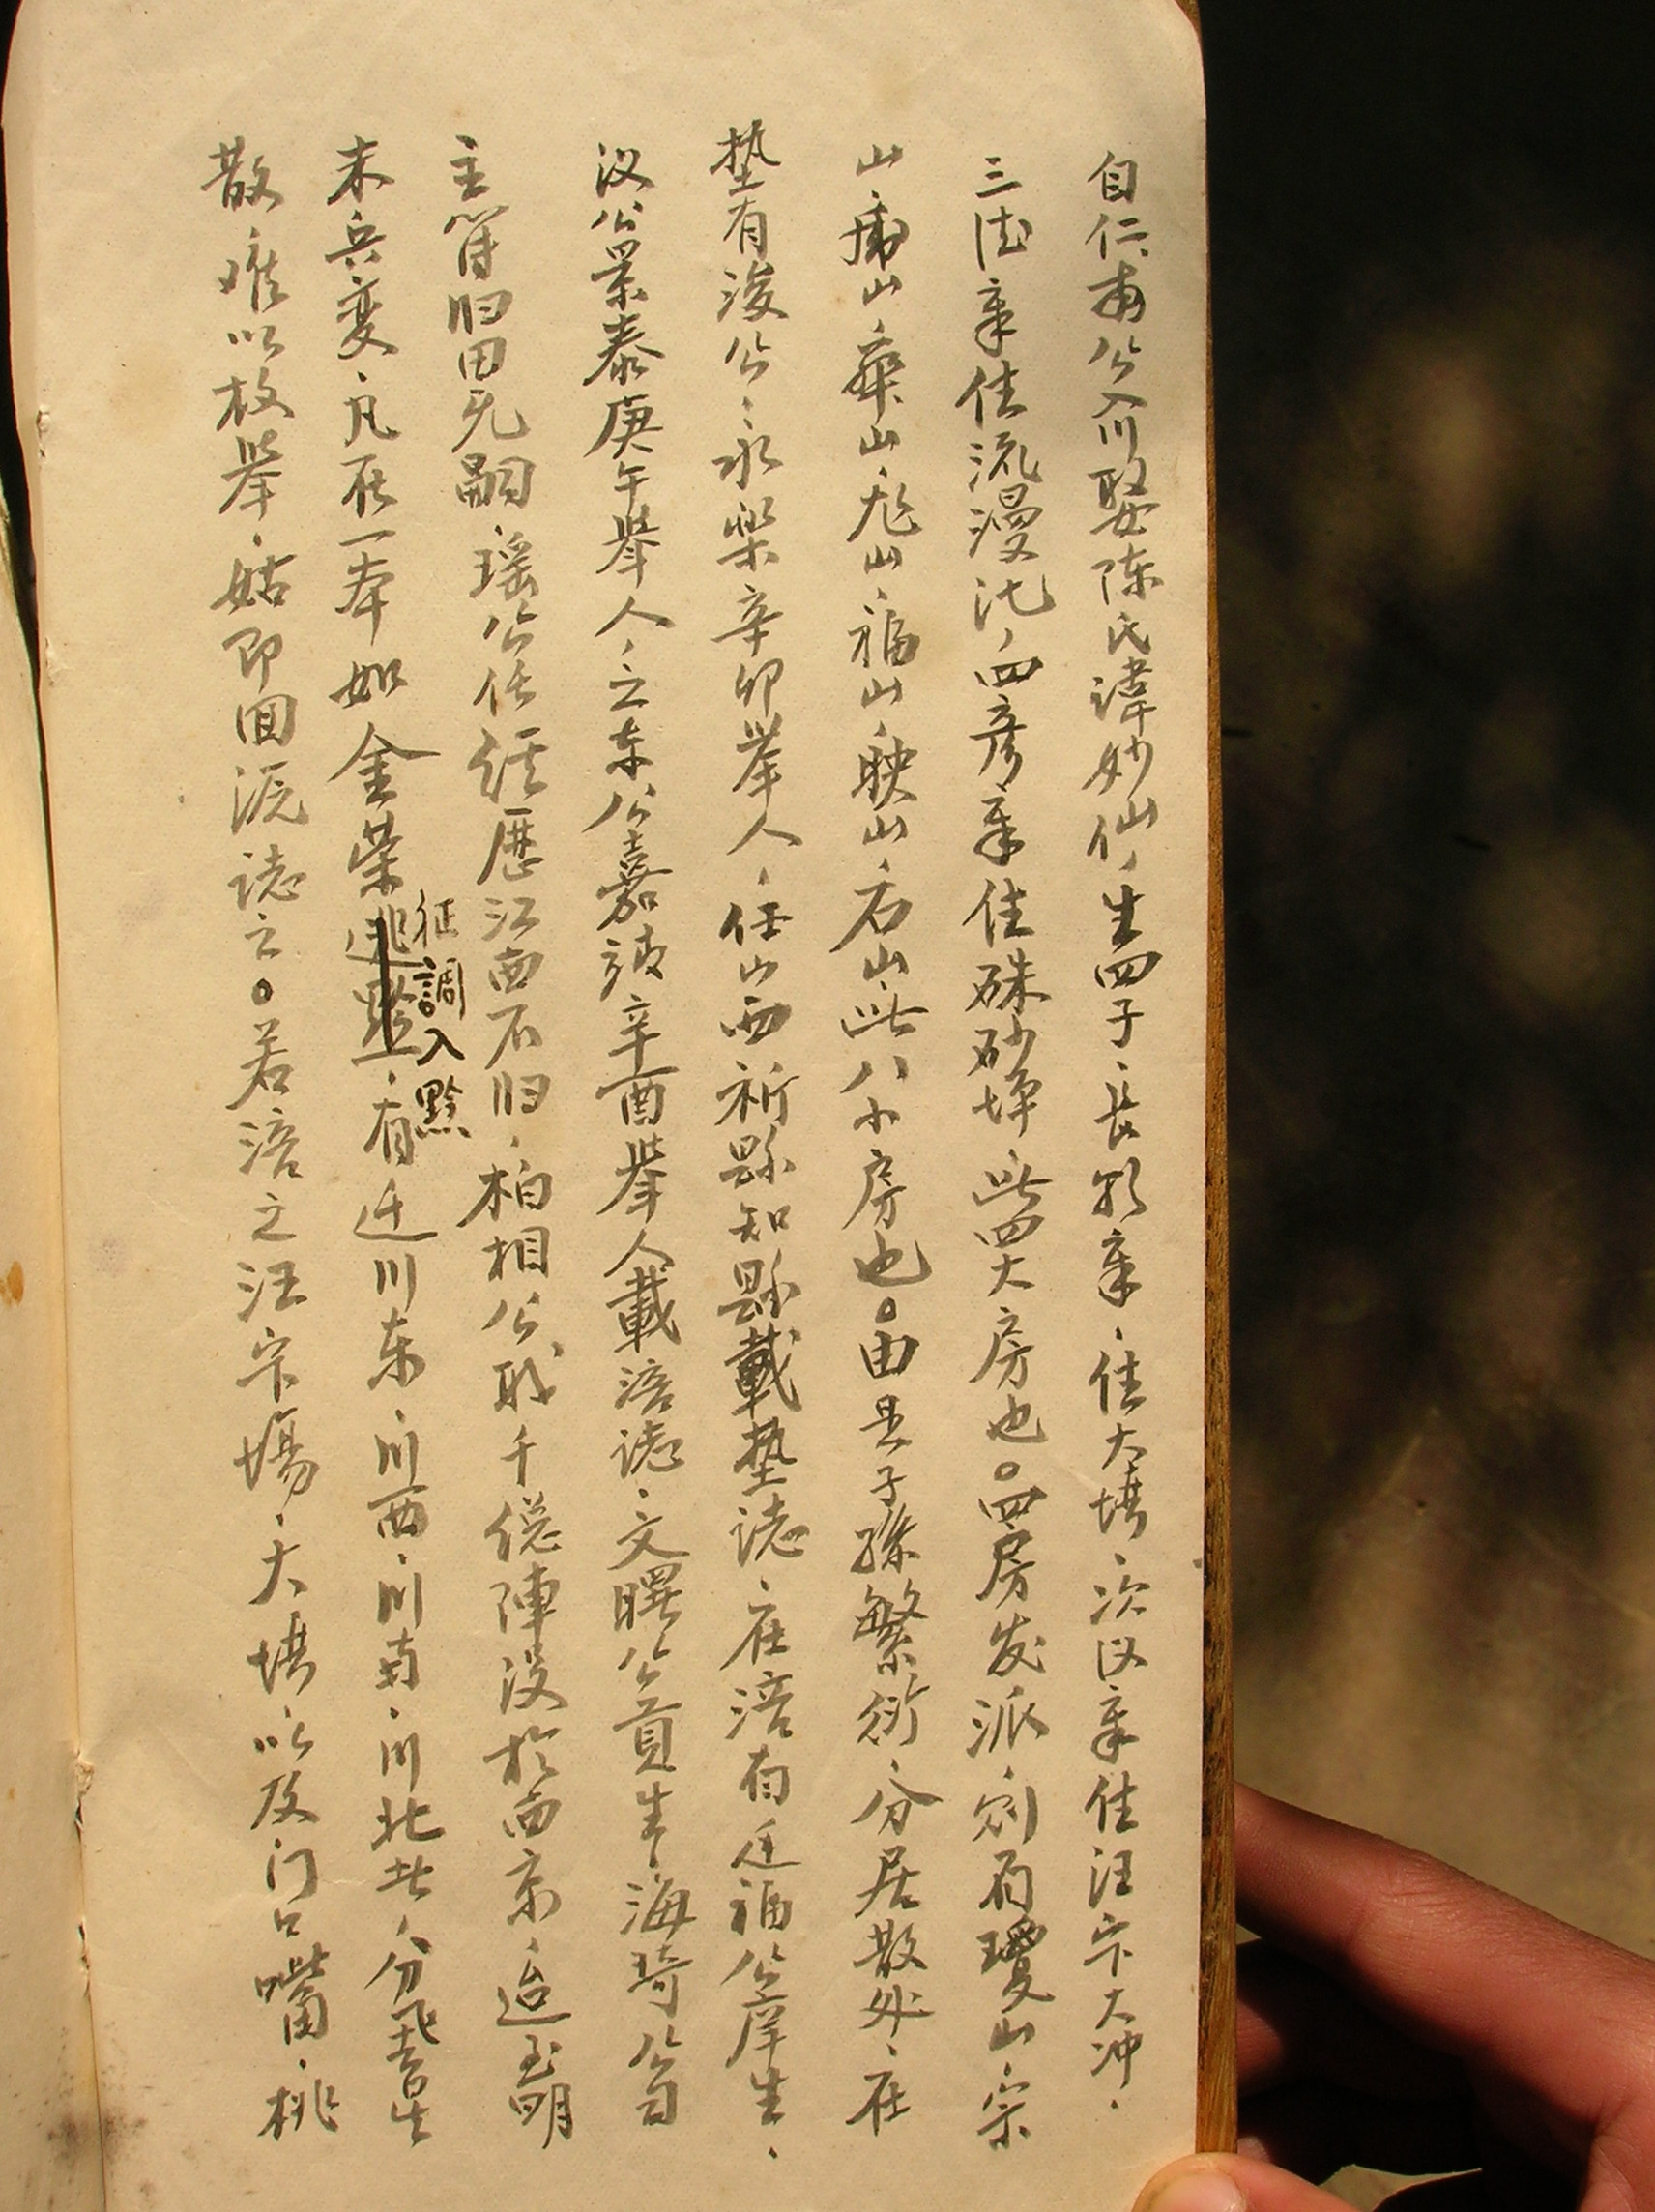 自仁甫公入川娶陈氏諱妙仙，生四子、長㓜章、住大塆、次汉章住汪家大冲、
三法章住流漫沱，四彦章住硃砂坪此四大房也。四房发派则有瓊山、宗
山、庸山、舜山、尨山、福山、映山、石山、此八小房也。由是子孫繁衍、分居散处、在
垫有浚公、永樂辛卯举人、任山西祈縣知縣載垫誌、在涪有廷福公庠生、
汉公景泰庚午举人，之东公嘉靖辛酉举人載涪誌、文曙公貢生、海琦公曰
主簿归田无嗣、瑶公任经歷江西不归、柏相公職千總陣没於西京、迨至明
末兵变、凡在一本如金榮征調入黔、有迁川东、川西、川南、川北者，分飛者生
散难以枚举、姑即回源誌之。若涪之汪家場、大塆以及门口嘴、桃